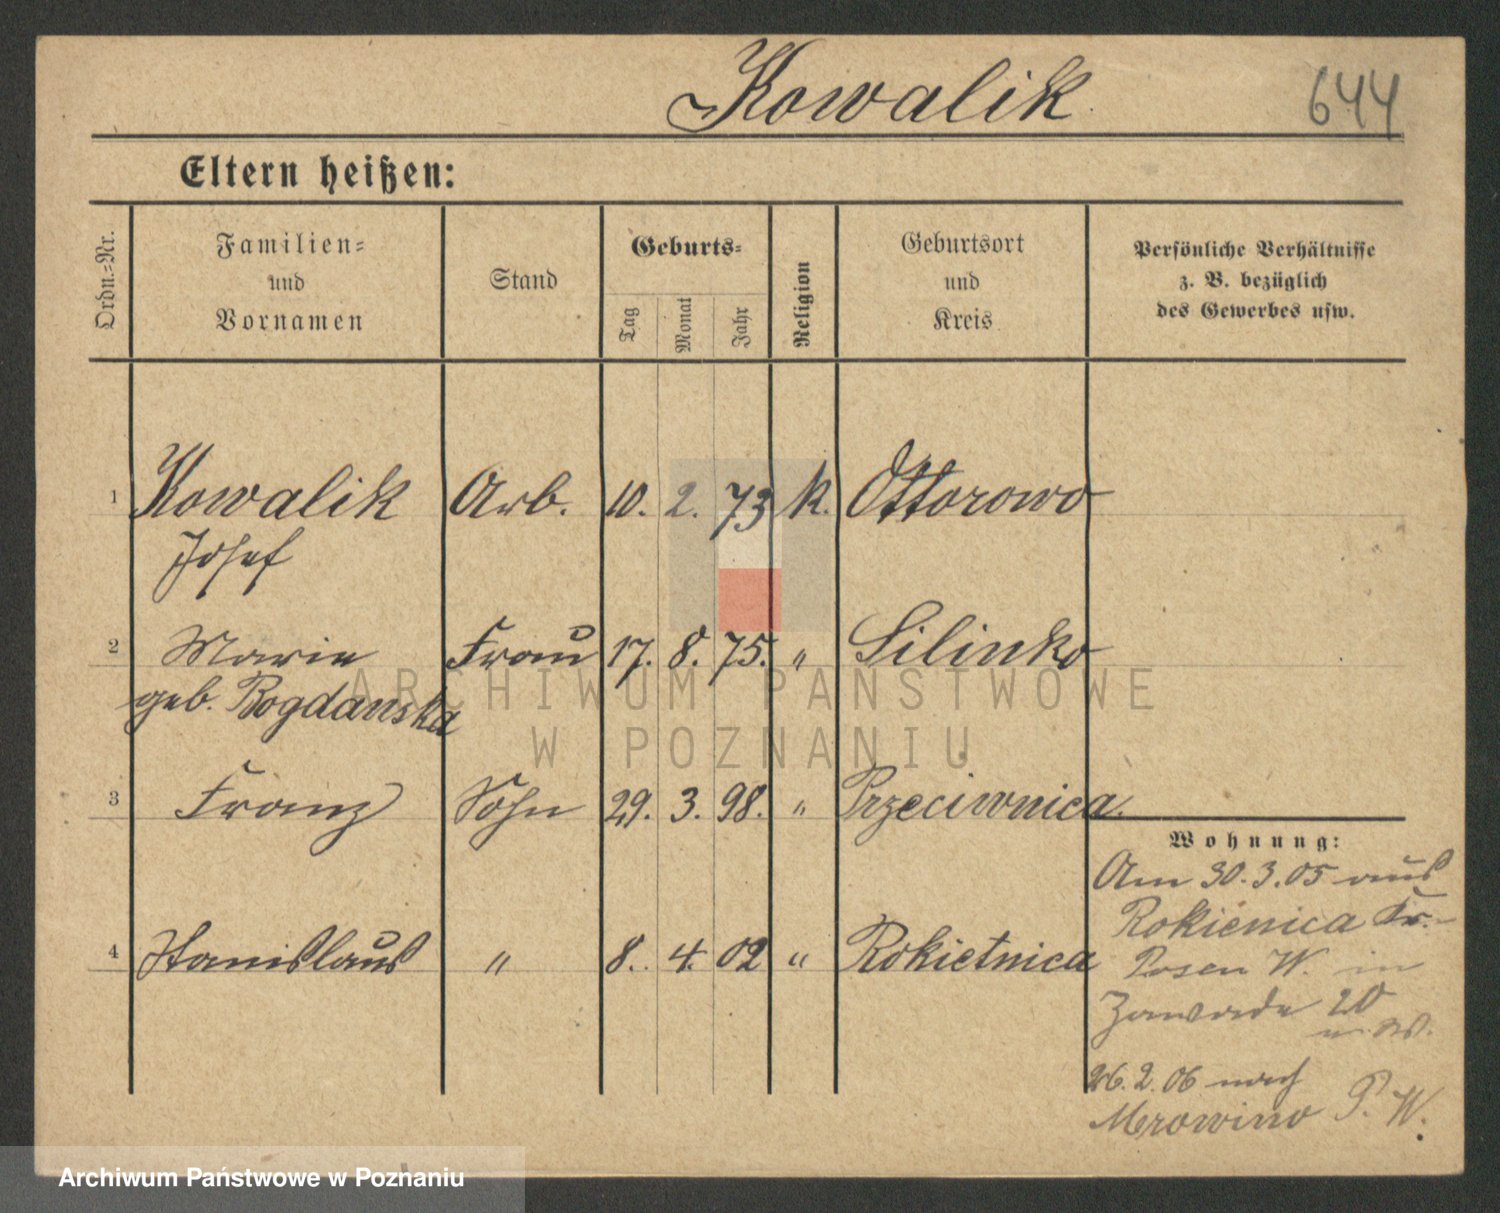 Kowalik 644
Eltern heißen:
Ordn.-Nr. Familien- und Vornamen Stand Geburts- Tag Monat Jahr Religion Geburtsort und Kreis Persönliche Verhältnisse z. B. bezüglich des Gewerbes usw.
1 Kowalik Arb. 10. 2. 73 k. Ottorowo
Josef
2 Marie Frau 17. 8. 75. " Lilinko
geb. Bogdanska
ARCHIWUM PAŃSTWOWE
W POZNANIU
3 Franz Sohn 29. 3. 98. " Przeciwnica
Wohnung:
Am 30.3.05 aus
Rokienica Kr.
4 Stanislaus " 8. 4. 02 " Rokietnica
Posen W. in
Zawade 20
26.2.06 nach
Mrowino P. W.
Archiwum Państwowe w Poznaniu